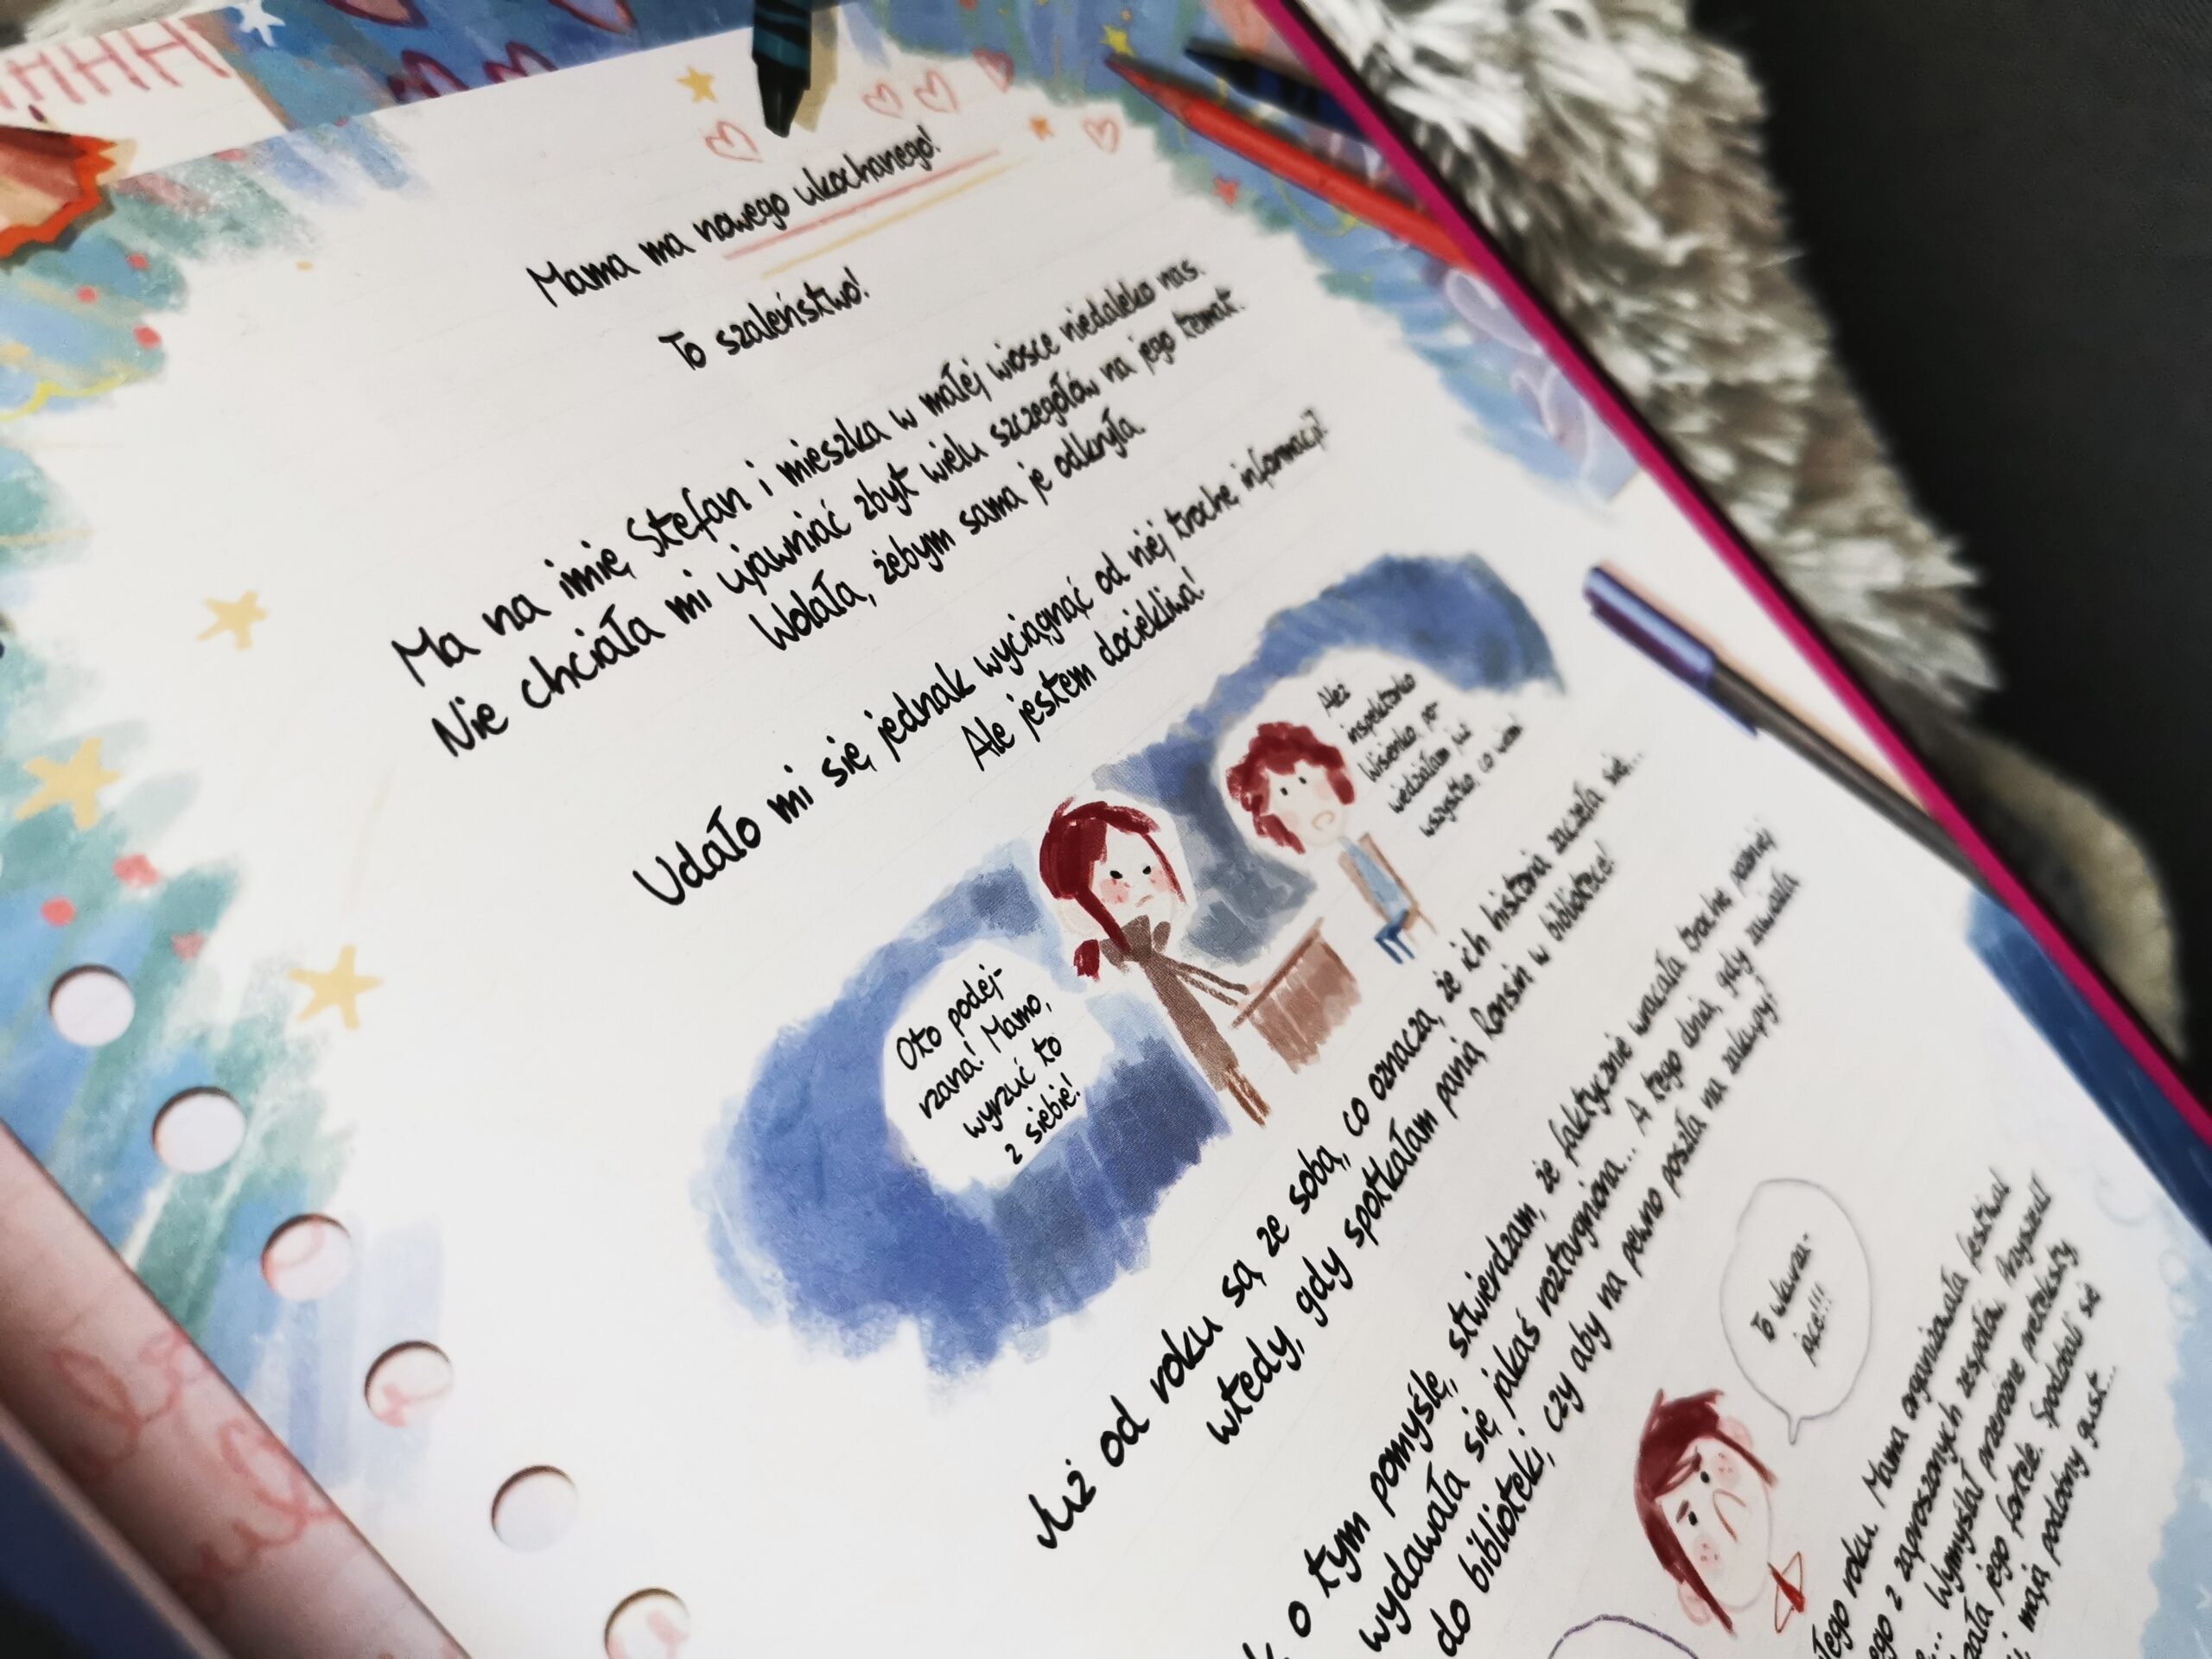 HHH
Mama ma nowego ukochanego!
To szaleństwo!
Ma na imię Stefan i mieszka w małej wiosce niedaleko nas.
Nie chciała mi ujawniać zbyt wielu szczegółów na jego temat.
Wolała, żebym sama je odkryła.
Udało mi się jednak wyciągnąć od niej trochę informacji!
Ale jestem dociekliwa!
Ależ
inspektorko
Wisienko, po-
wiedziałam już
wszystko, co wiem!
Oto podej-
rzana! Mamo,
wyrzuć to
z siebie!
Już od roku są ze sobą, co oznacza, że ich historia zaczęła się...
wtedy, gdy spotkałam panią Ronsin w bibliotece!
o tym pomyślę, stwierdzam, że faktycznie wracała trochę później
wydawała się jakaś roztargniona... A tego dnia, gdy zwiała
do biblioteki, czy aby na pewno poszła na zakupy?
To wkurza-
jące!!!
łego roku. Mama organizowała festiwal
ego z zaproszonych zespołów. Przyszedł
... Wymyślał przeróżne preteksty
jego fortele. Spodobali się
mają podobny gust...